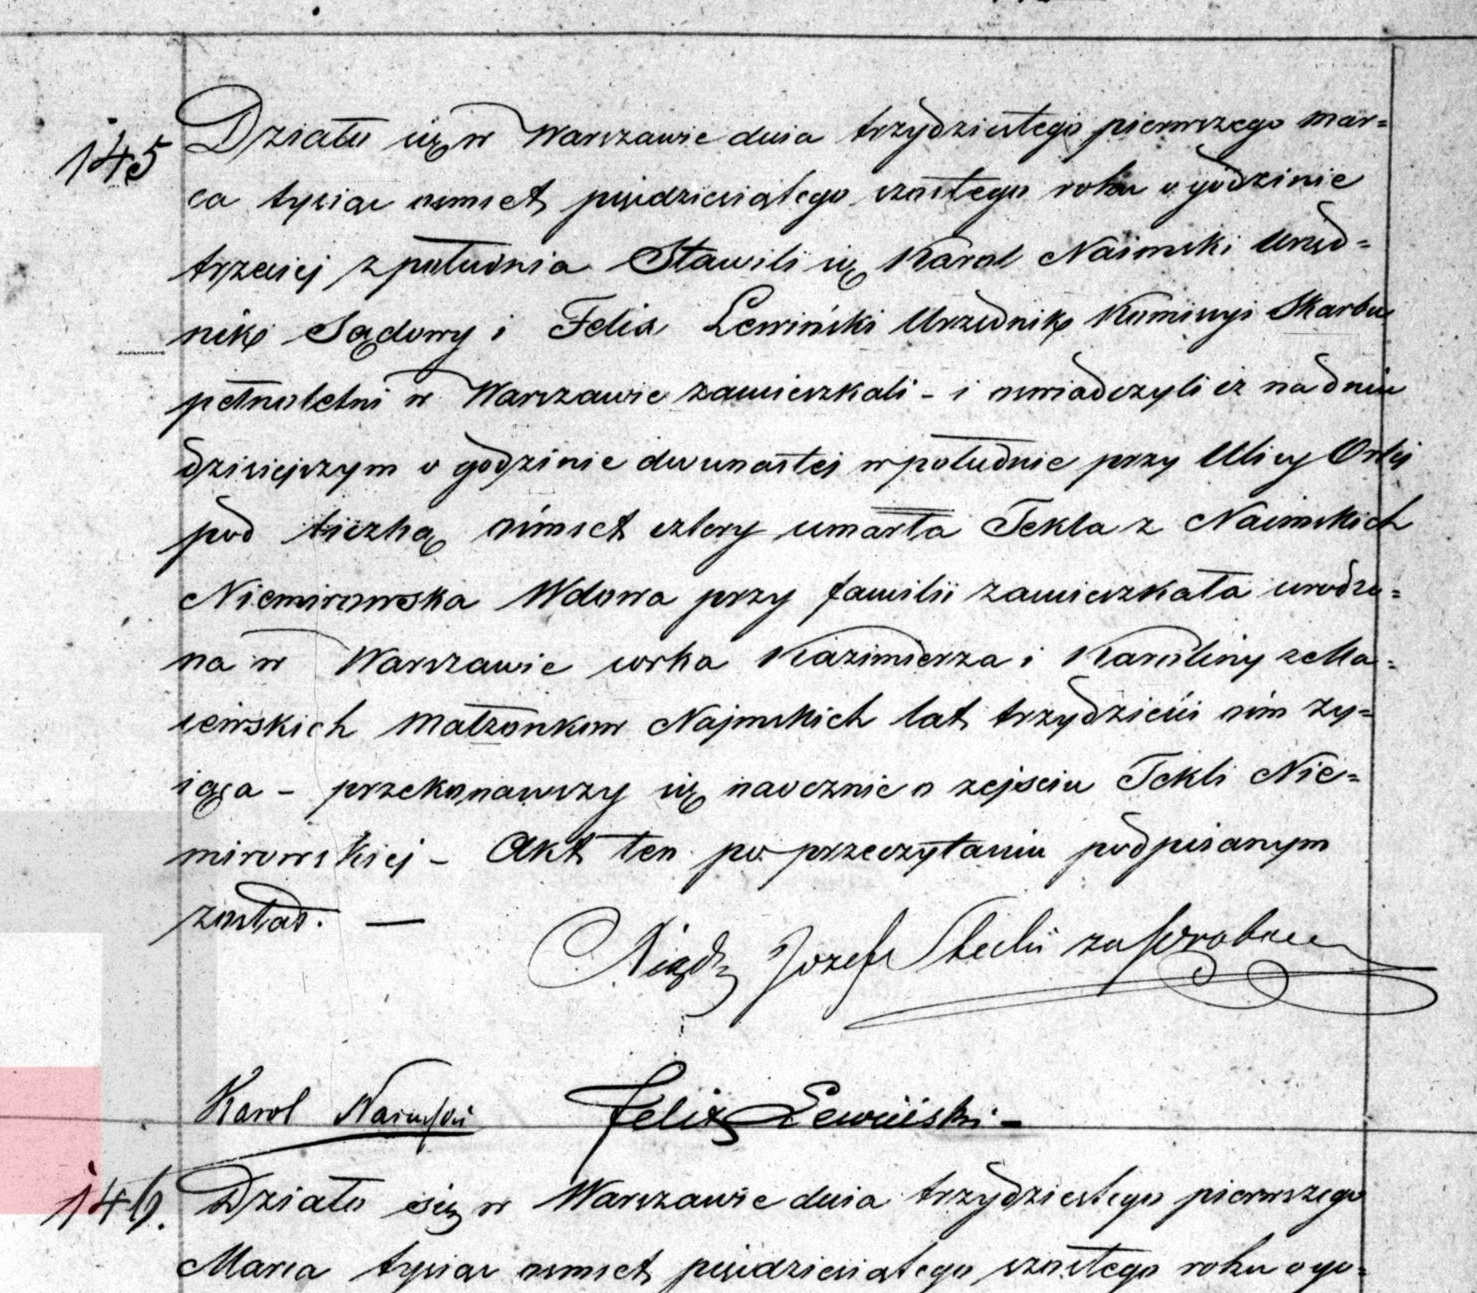 145
Działo się w Warszawie dnia trzydziestego pierwszego mar=
ca tysiac osmset piędziesiątego szóstego roku o godzinie
trzeciej z południa Stawili się Karol Naimski Urzęd=
nik Sądowy i Felix Lewiński Urzędnik Komisyi Skarbu
pełnoletni w Warszawie zamieszkali - i oswiadczyli iż na dniu
dzisiejszym o godzinie dwunastej w południe przy Ulicy Orlej
pod liczbą ośmset cztery umarła Tekla z Naimskich
Niemirowska Wdowa przy familii zamieszkała urodzo=
na w Warszawie corka Kazimierza i Karoliny z Ma=
iewskich Małżonkow Najmskich lat trzydzieści ośm ży=
iąca - przekonawszy się naocznie o zejsciu Tekli Nie=
mirowskiej - Akt ten po przeczytaniu podpisanym
został. —
Xiądz Jozef Stecki za Proboszcza
Karol Naimski Felix Lewiński -
146.
Działo się w Warszawie dnia trzydziestego pierwszego
Marca tysiac osmset piędziesiątego szóstego roku o go=